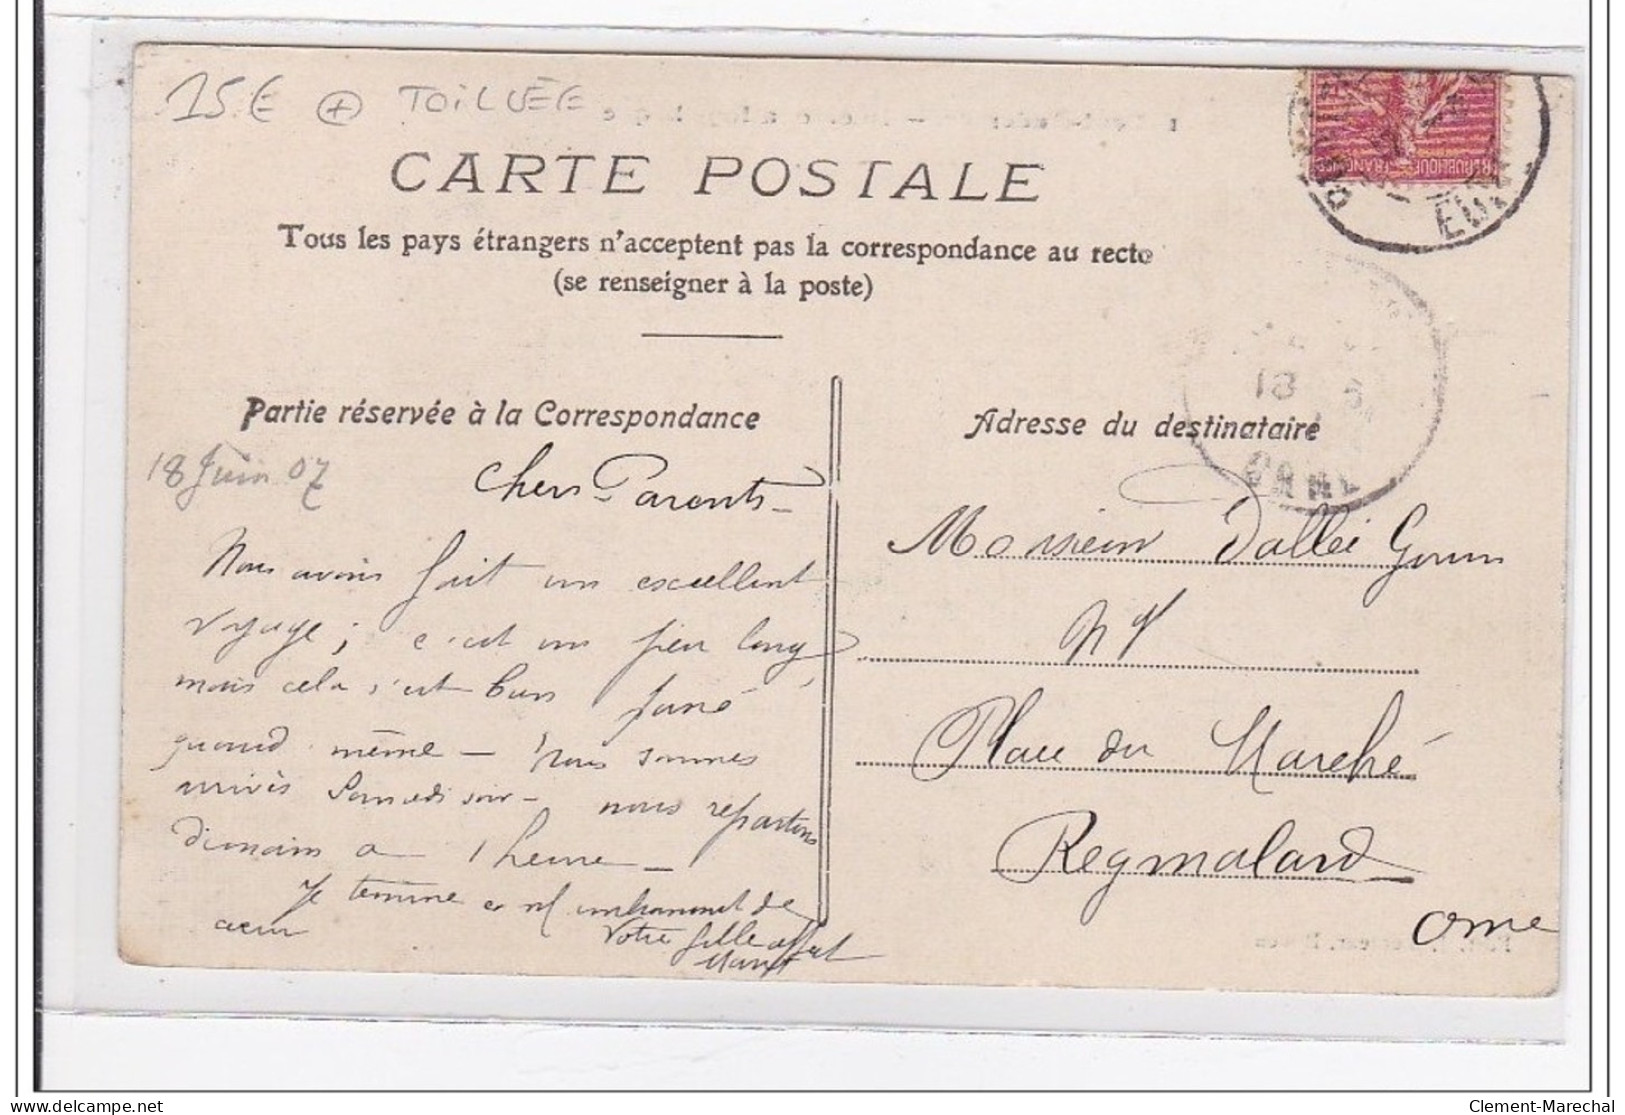 15€ + TOILÉE
CARTE POSTALE
Tous les pays étrangers n'acceptent pas la correspondance au recto
(se renseigner à la poste)
RÉPUBLIQUE FRANC
EU
18 6
ORNE
Partie réservée à la Correspondance
Adresse du destinataire
18 Juin 07
Chers Parents -
Nous avons fait un excellent
voyage; c'est un peu long
mais cela s'est bien passé
quand même - Nous sommes
arrivés Samedi soir - nous repartons
demain a 1 heure -
Je termine en embrassant de
cœur Votre fille
Monsieur
Place du Marché
Regmalard
Orne
Clement-Marechal